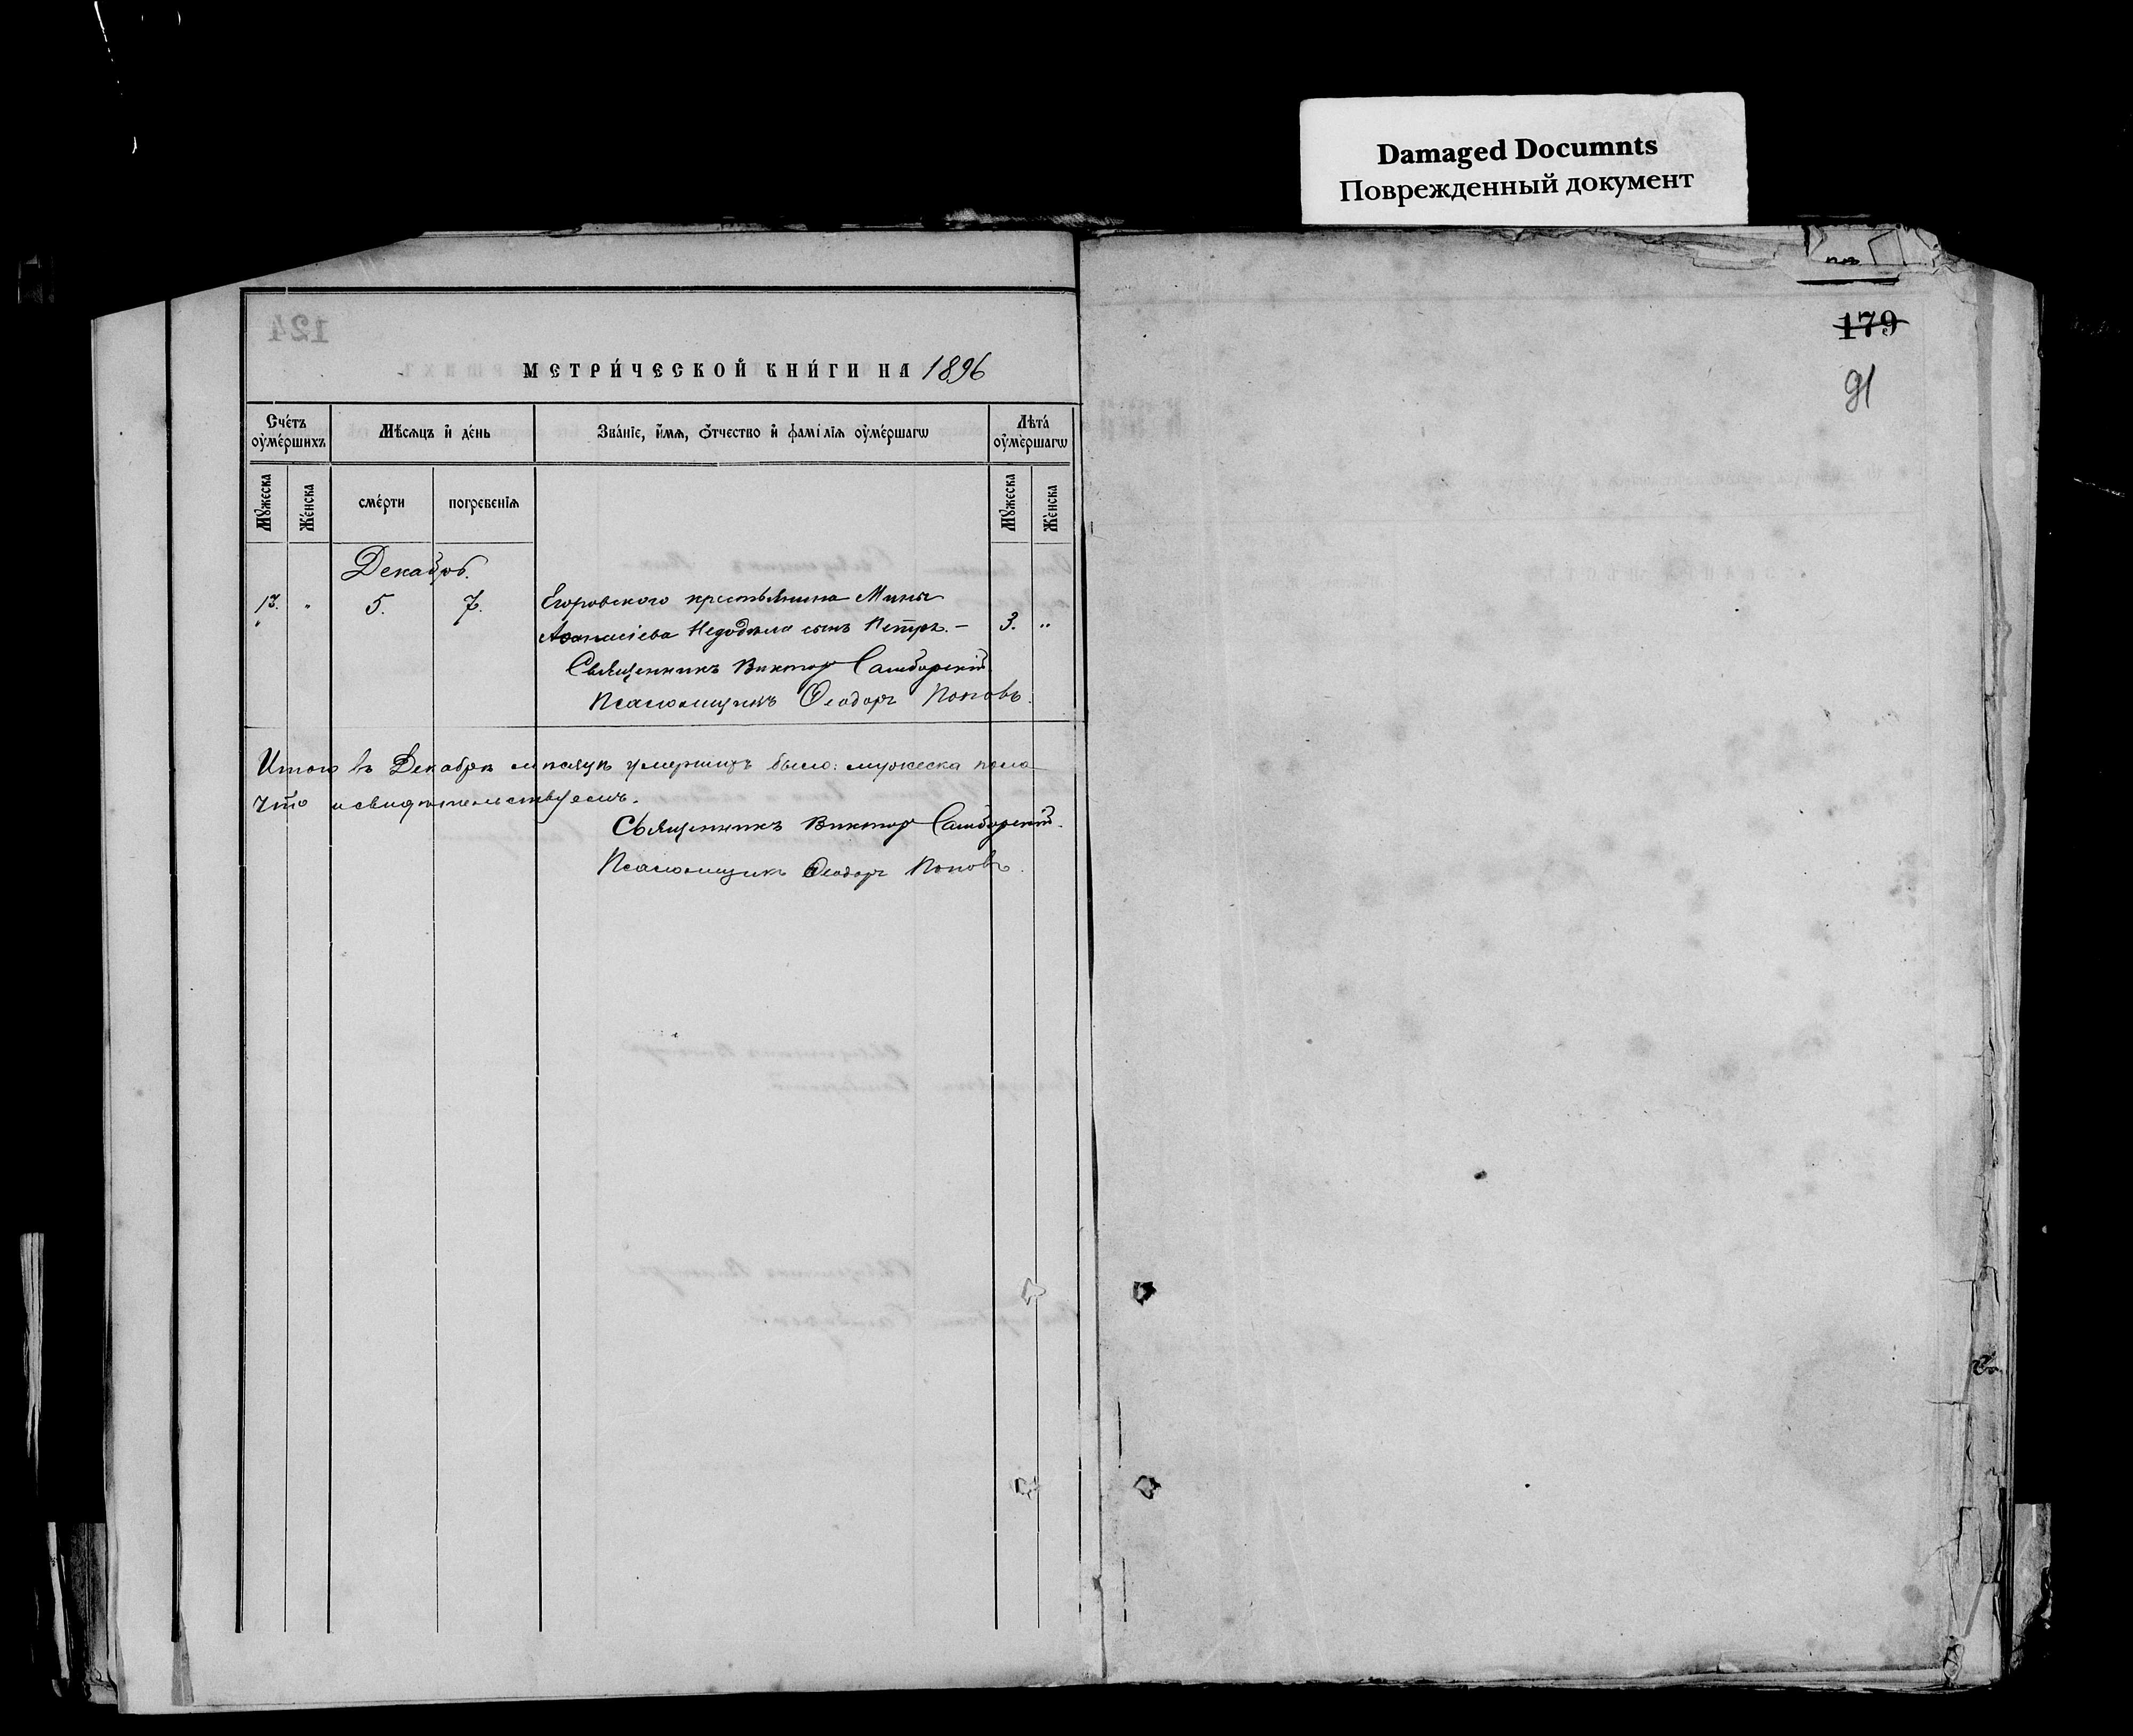 Damaged Documnts
Поврежденный документ
179
91
124
МЕТРИ́ЧЕСКОЙ КНИ́ГИ НА 1896
Сче́тъ ᲂу҆ме́ршихъ
Мѣ́сѧцъ и҆ де́нь
Зва́нїе, и҆́мѧ, ѻ҆́тчество и҆ фамі́лїѧ ᲂу҆ме́ршагѡ
Лѣта̀ ᲂу҆ме́ршагѡ
Мꙋ́жеска
Же́нска
сме́рти
погребе́нїѧ
Мꙋ́жеска
Же́нска
Декабрь.
13. " 5. 7. Егоровского крестьянина Мины
Аѳанасіева сынъ Петръ. – 3. "
Священникъ Викторъ Самборскій.
Псаломщикъ Ѳеодоръ Поповъ.
Итого въ Декабрѣ мѣсяцѣ умершихъ было: мужеска пола
Что и свидѣтельствуемъ.
Священникъ Викторъ Самборскій.
Псаломщикъ Ѳеодоръ Поповъ.